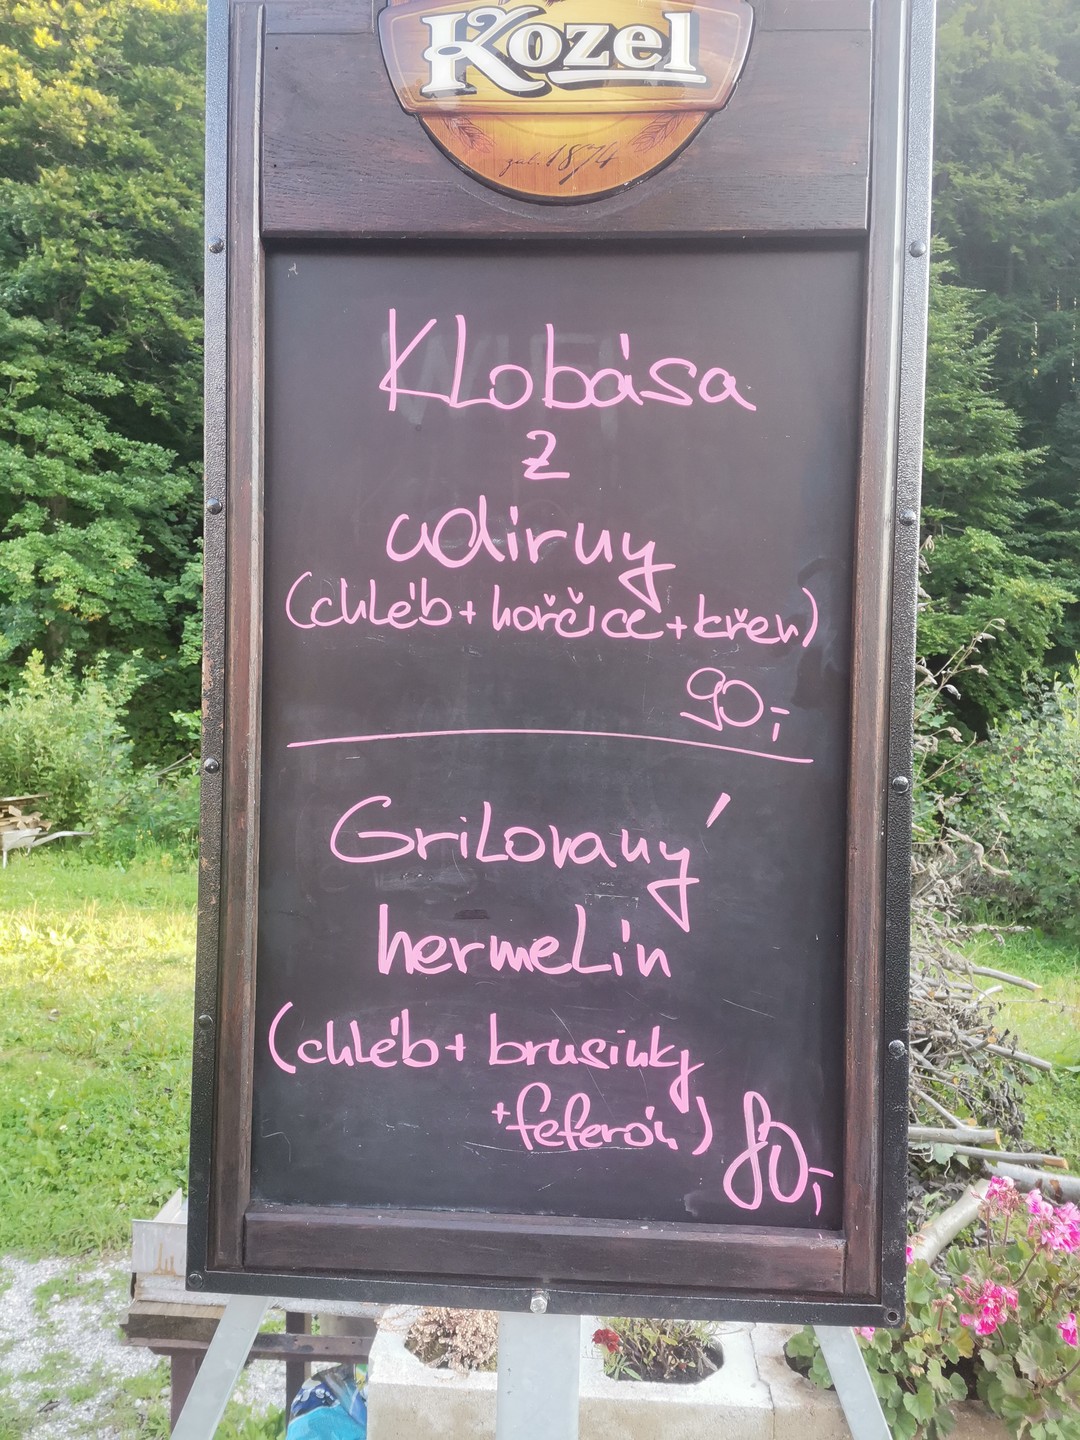 Kozel
zal. 1874
Klobása
z
udírny
(chléb + hořčice + křen)
90,-
Grilovaný
hermelín
(chléb + brusinky
+ feferon)
80,-